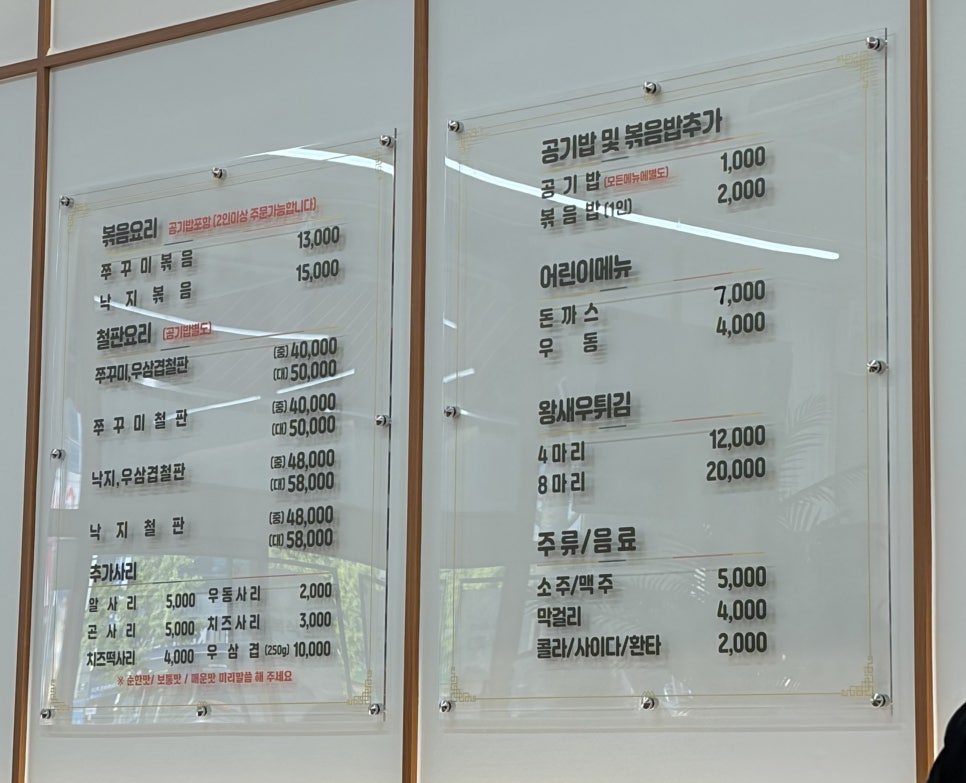 볶음요리 공기밥포함 (2인이상 주문가능합니다)
쭈꾸미볶음 13,000
낙지볶음 15,000
철판요리 (공기밥별도)
쭈꾸미,우삼겹철판 (중) 40,000
(대) 50,000
쭈꾸미철판 (중) 40,000
(대) 50,000
낙지,우삼겹철판 (중) 48,000
(대) 58,000
낙지철판 (중) 48,000
(대) 58,000
추가사리
알사리 5,000 우동사리 2,000
곤사리 5,000 치즈사리 3,000
치즈떡사리 4,000 우삼겹 (250g) 10,000
※ 순한맛/ 보통맛 / 매운맛 미리말씀 해 주세요
공기밥 및 볶음밥추가
공기밥 (모든메뉴에별도) 1,000
볶음밥 (1인) 2,000
어린이메뉴
돈까스 7,000
우동 4,000
왕새우튀김
4마리 12,000
8마리 20,000
주류/음료
소주/맥주 5,000
막걸리 4,000
콜라/사이다/환타 2,000